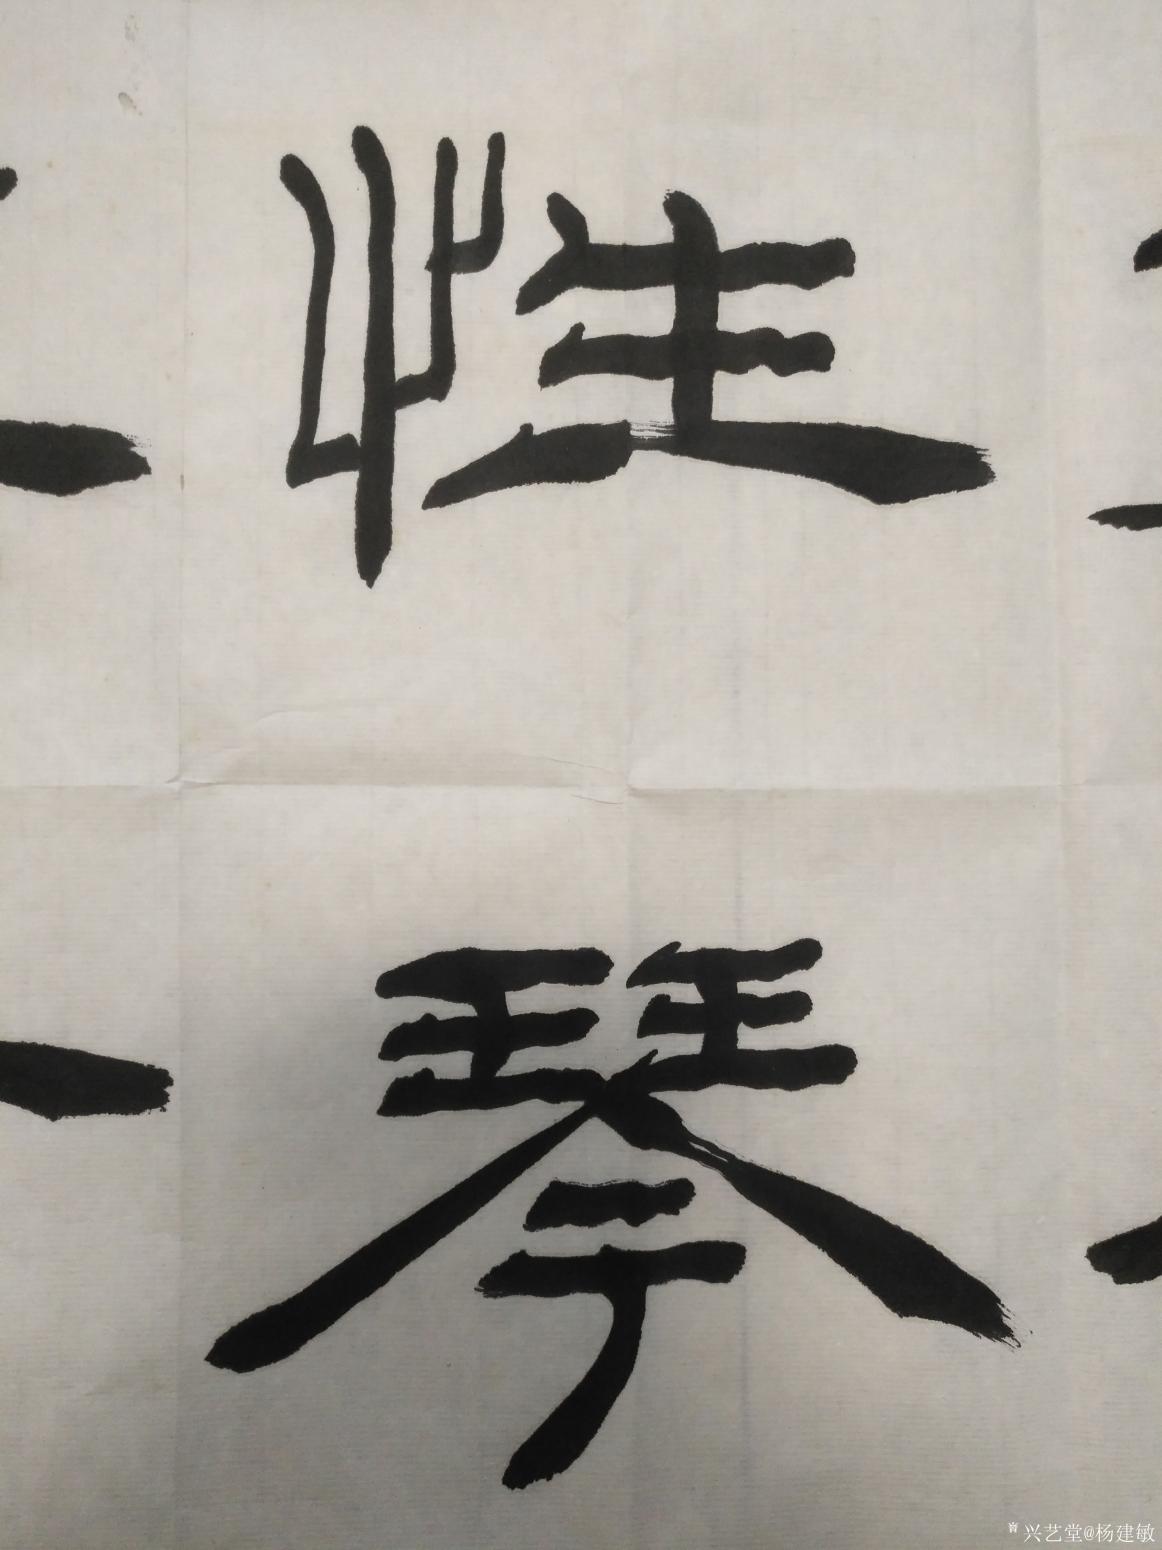 性
琴
兴艺堂@杨建敏